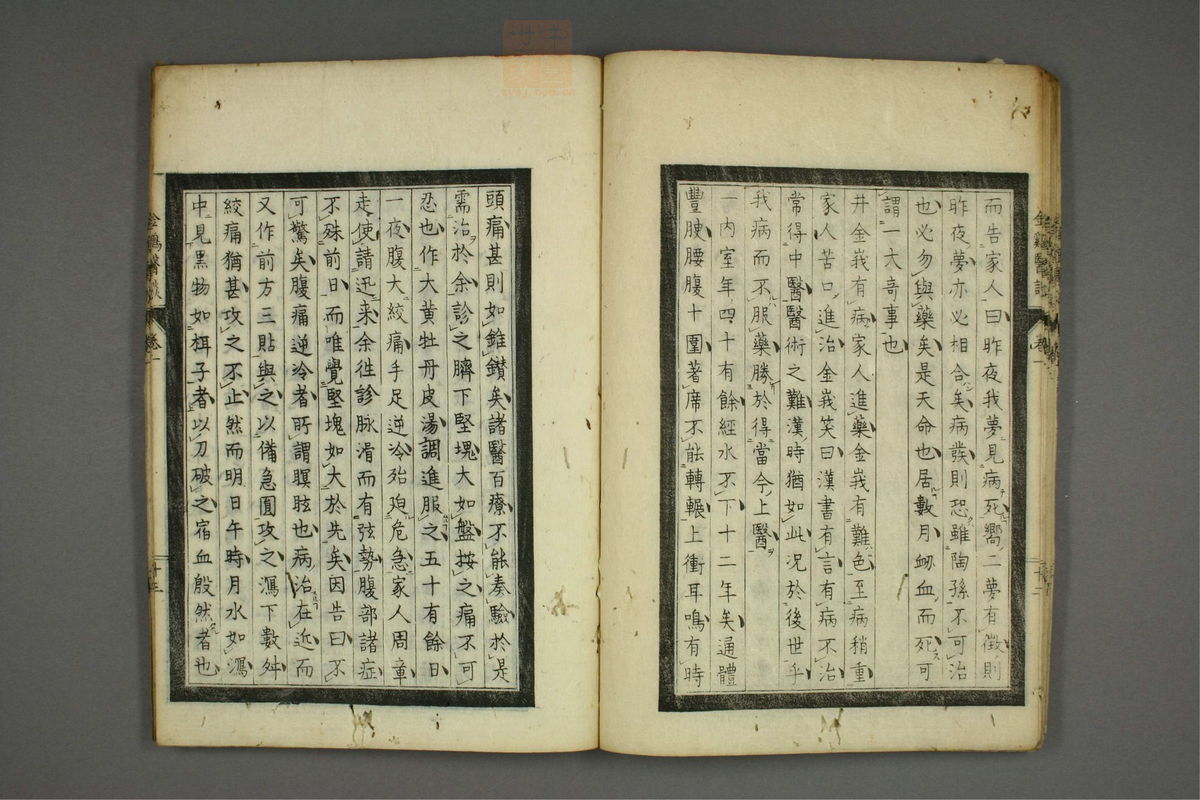 而告家人曰昨夜我夢見病死嚮二夢有徵則
昨夜夢亦必相合矣病發則恐雖陶孫不可治
也必勿與藥矣是天命也居數月衂血而死可
謂一大奇事也
井金峩有病家人進藥金峩有難色至病稍重
家人苦口進治金峩笑曰漢書有言有病不治
常得中醫醫術之難漢時猶如此況於後世乎
我病而不服藥勝於得當今上醫
一內室年四十有餘經水不下十二年矣通體
豐腴腰腹十圍著席不能轉輾上衝耳鳴有時
金雞醫談
卷一
十二
頭痛甚則如錐鑽矣諸醫百療不能奏驗於是
需治於余診之臍下堅塊大如盤按之痛不可
忍也作大黃牡丹皮湯調進服之五十有餘日
一夜腹大絞痛手足逆冷殆廹危急家人周章
走使請迅来余徃診脉滑而有弦勢腹部諸症
不殊前日而唯覺堅塊如大於先矣因告曰不
可驚矣腹痛逆冷者所謂瞑眩也病治在近而
又作前方三貼與之以備急圓攻之瀉下數舛
絞痛猶甚攻之不止然而明日午時月水如瀉
中見黑物如栮子者以刀破之宿血殷然者也
金鷄醫談
卷一
十三